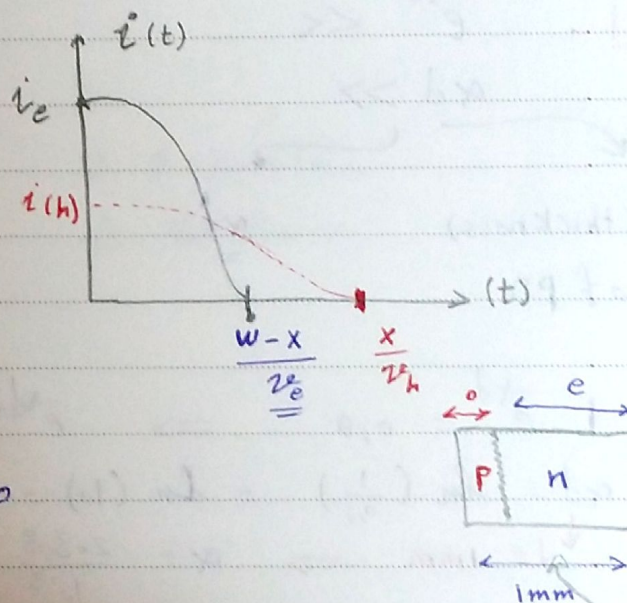 i(t)
i_e
i(h)
(t)
w-x / v_e
x / v_h
e
P
n
1mm